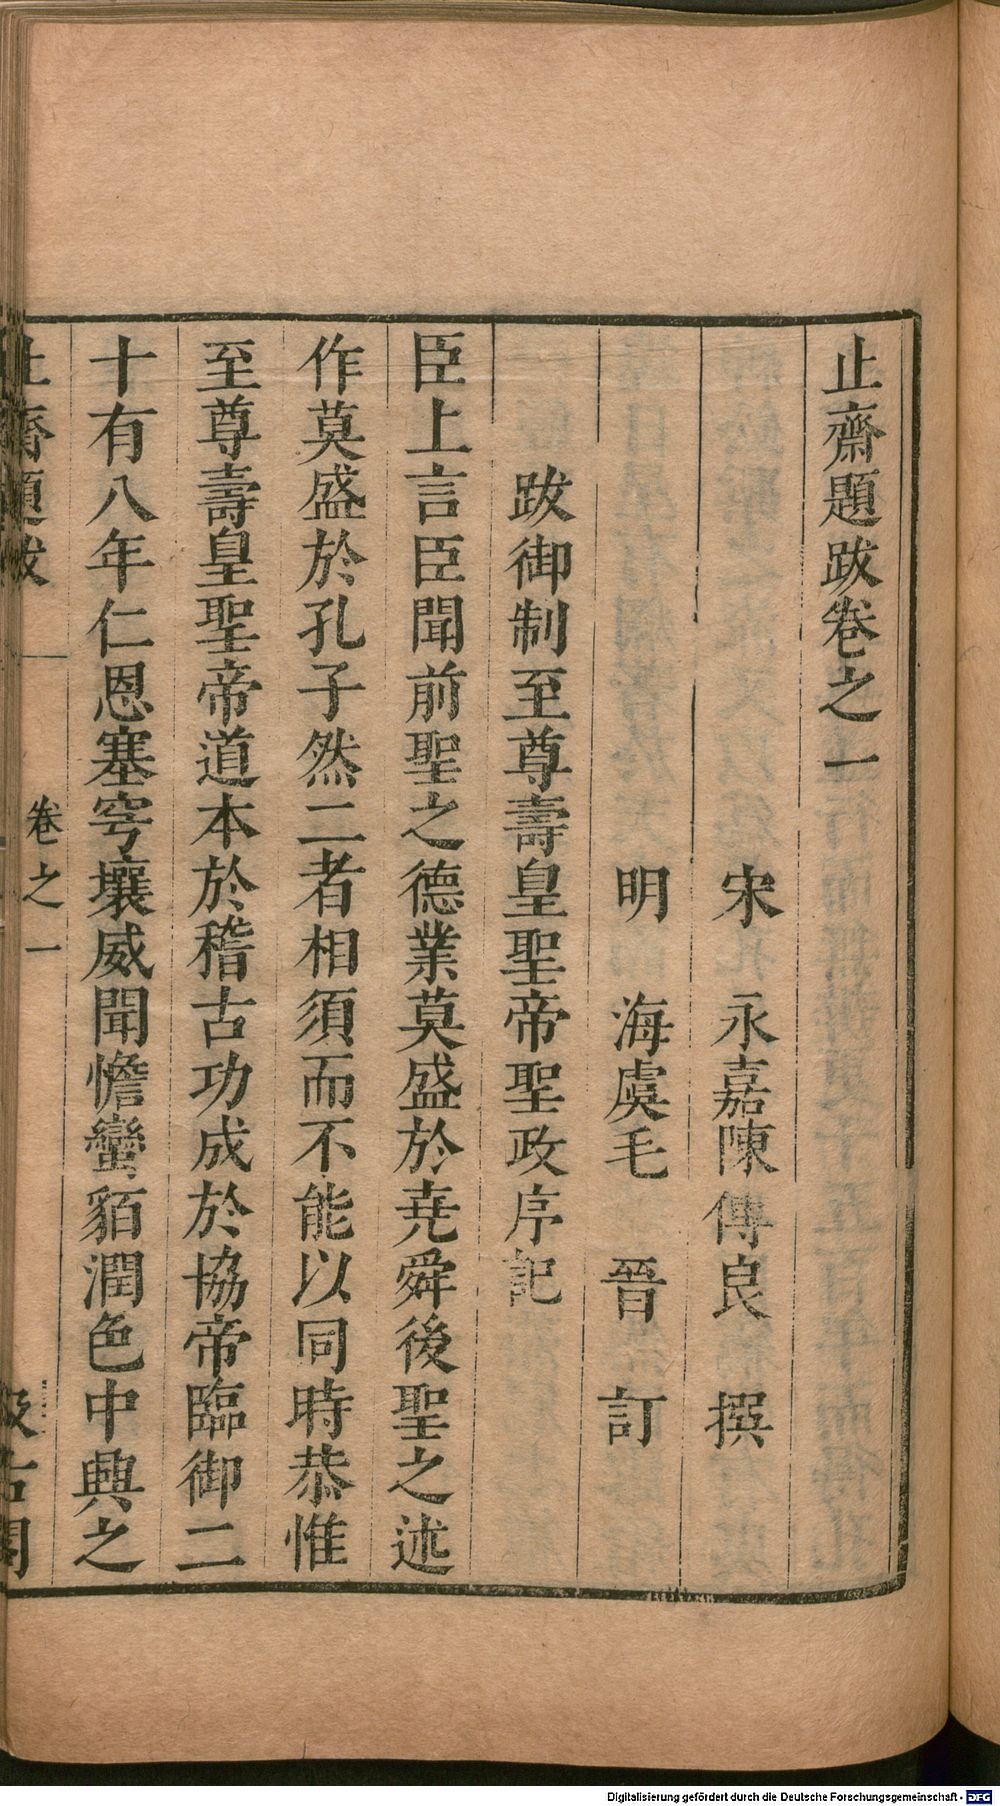 止齋題跋卷之一
宋 永嘉陳傅良 撰
明 海虞毛 晉 訂
跋御制至尊壽皇聖帝聖政序記
臣上言臣聞前聖之德業莫盛於堯舜後聖之述
作莫盛於孔子然二者相須而不能以同時恭惟
至尊壽皇聖帝道本於稽古功成於協帝臨御二
十有八年仁恩塞穹壤威聞憺蠻貊潤色中興之
止齋題跋 卷之一 汲古閣
Digitalisierung gefördert durch die Deutsche Forschungsgemeinschaft - DFG